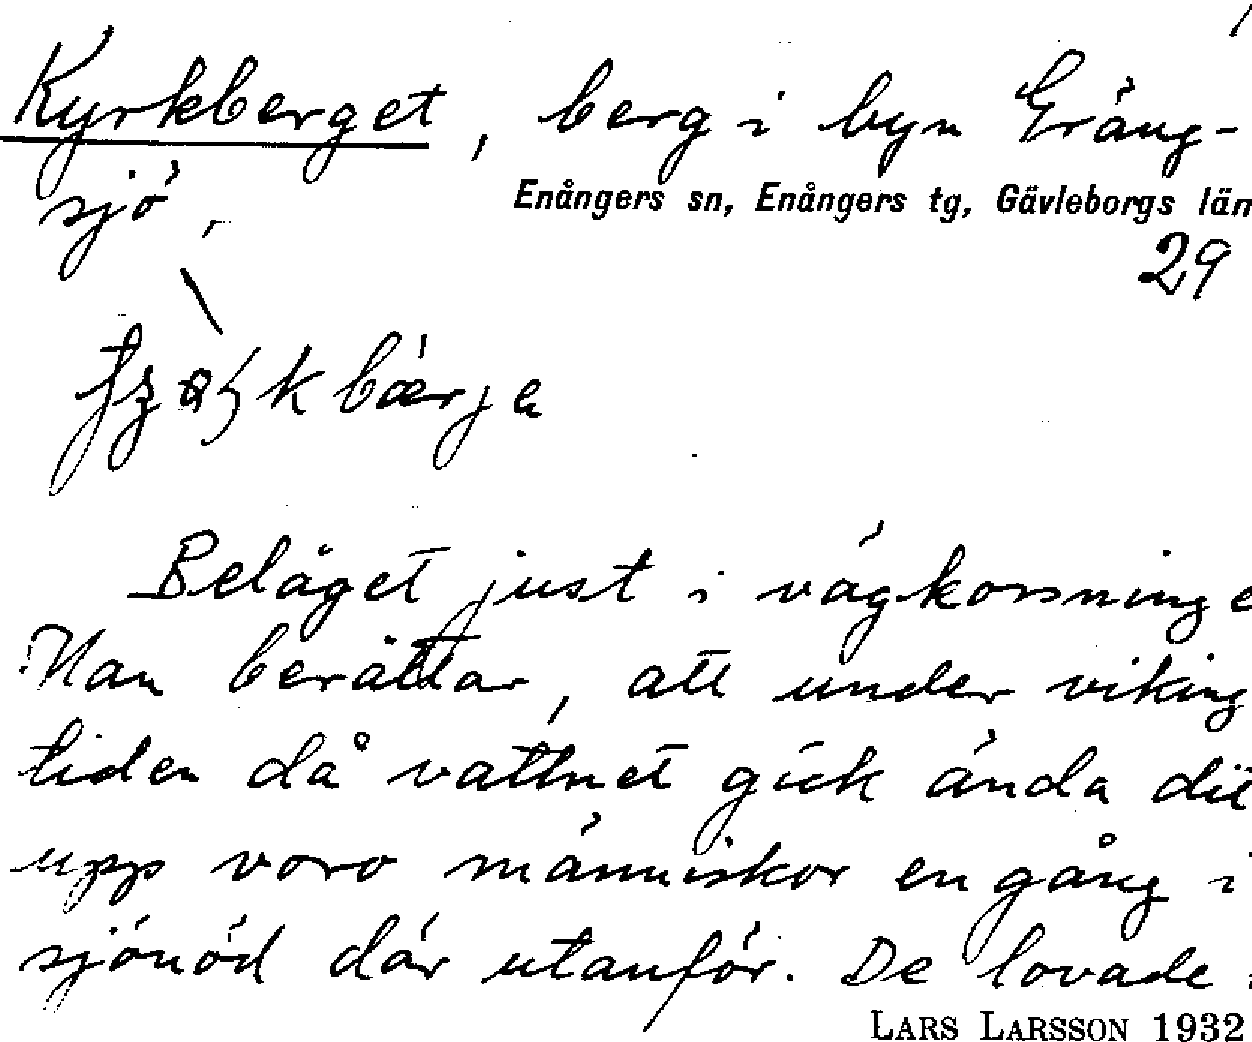 Kyrkberget, berg i byn Gräng-
sjö,
Enångers sn, Enångers tg, Gävleborgs län
29
Beläget just i vägkorsninge
Man berättar, att under viking
tiden då vattnet gick ända dit
upp voro människor en gång i
sjönöd där utanför. De lovade
LARS LARSSON 1932